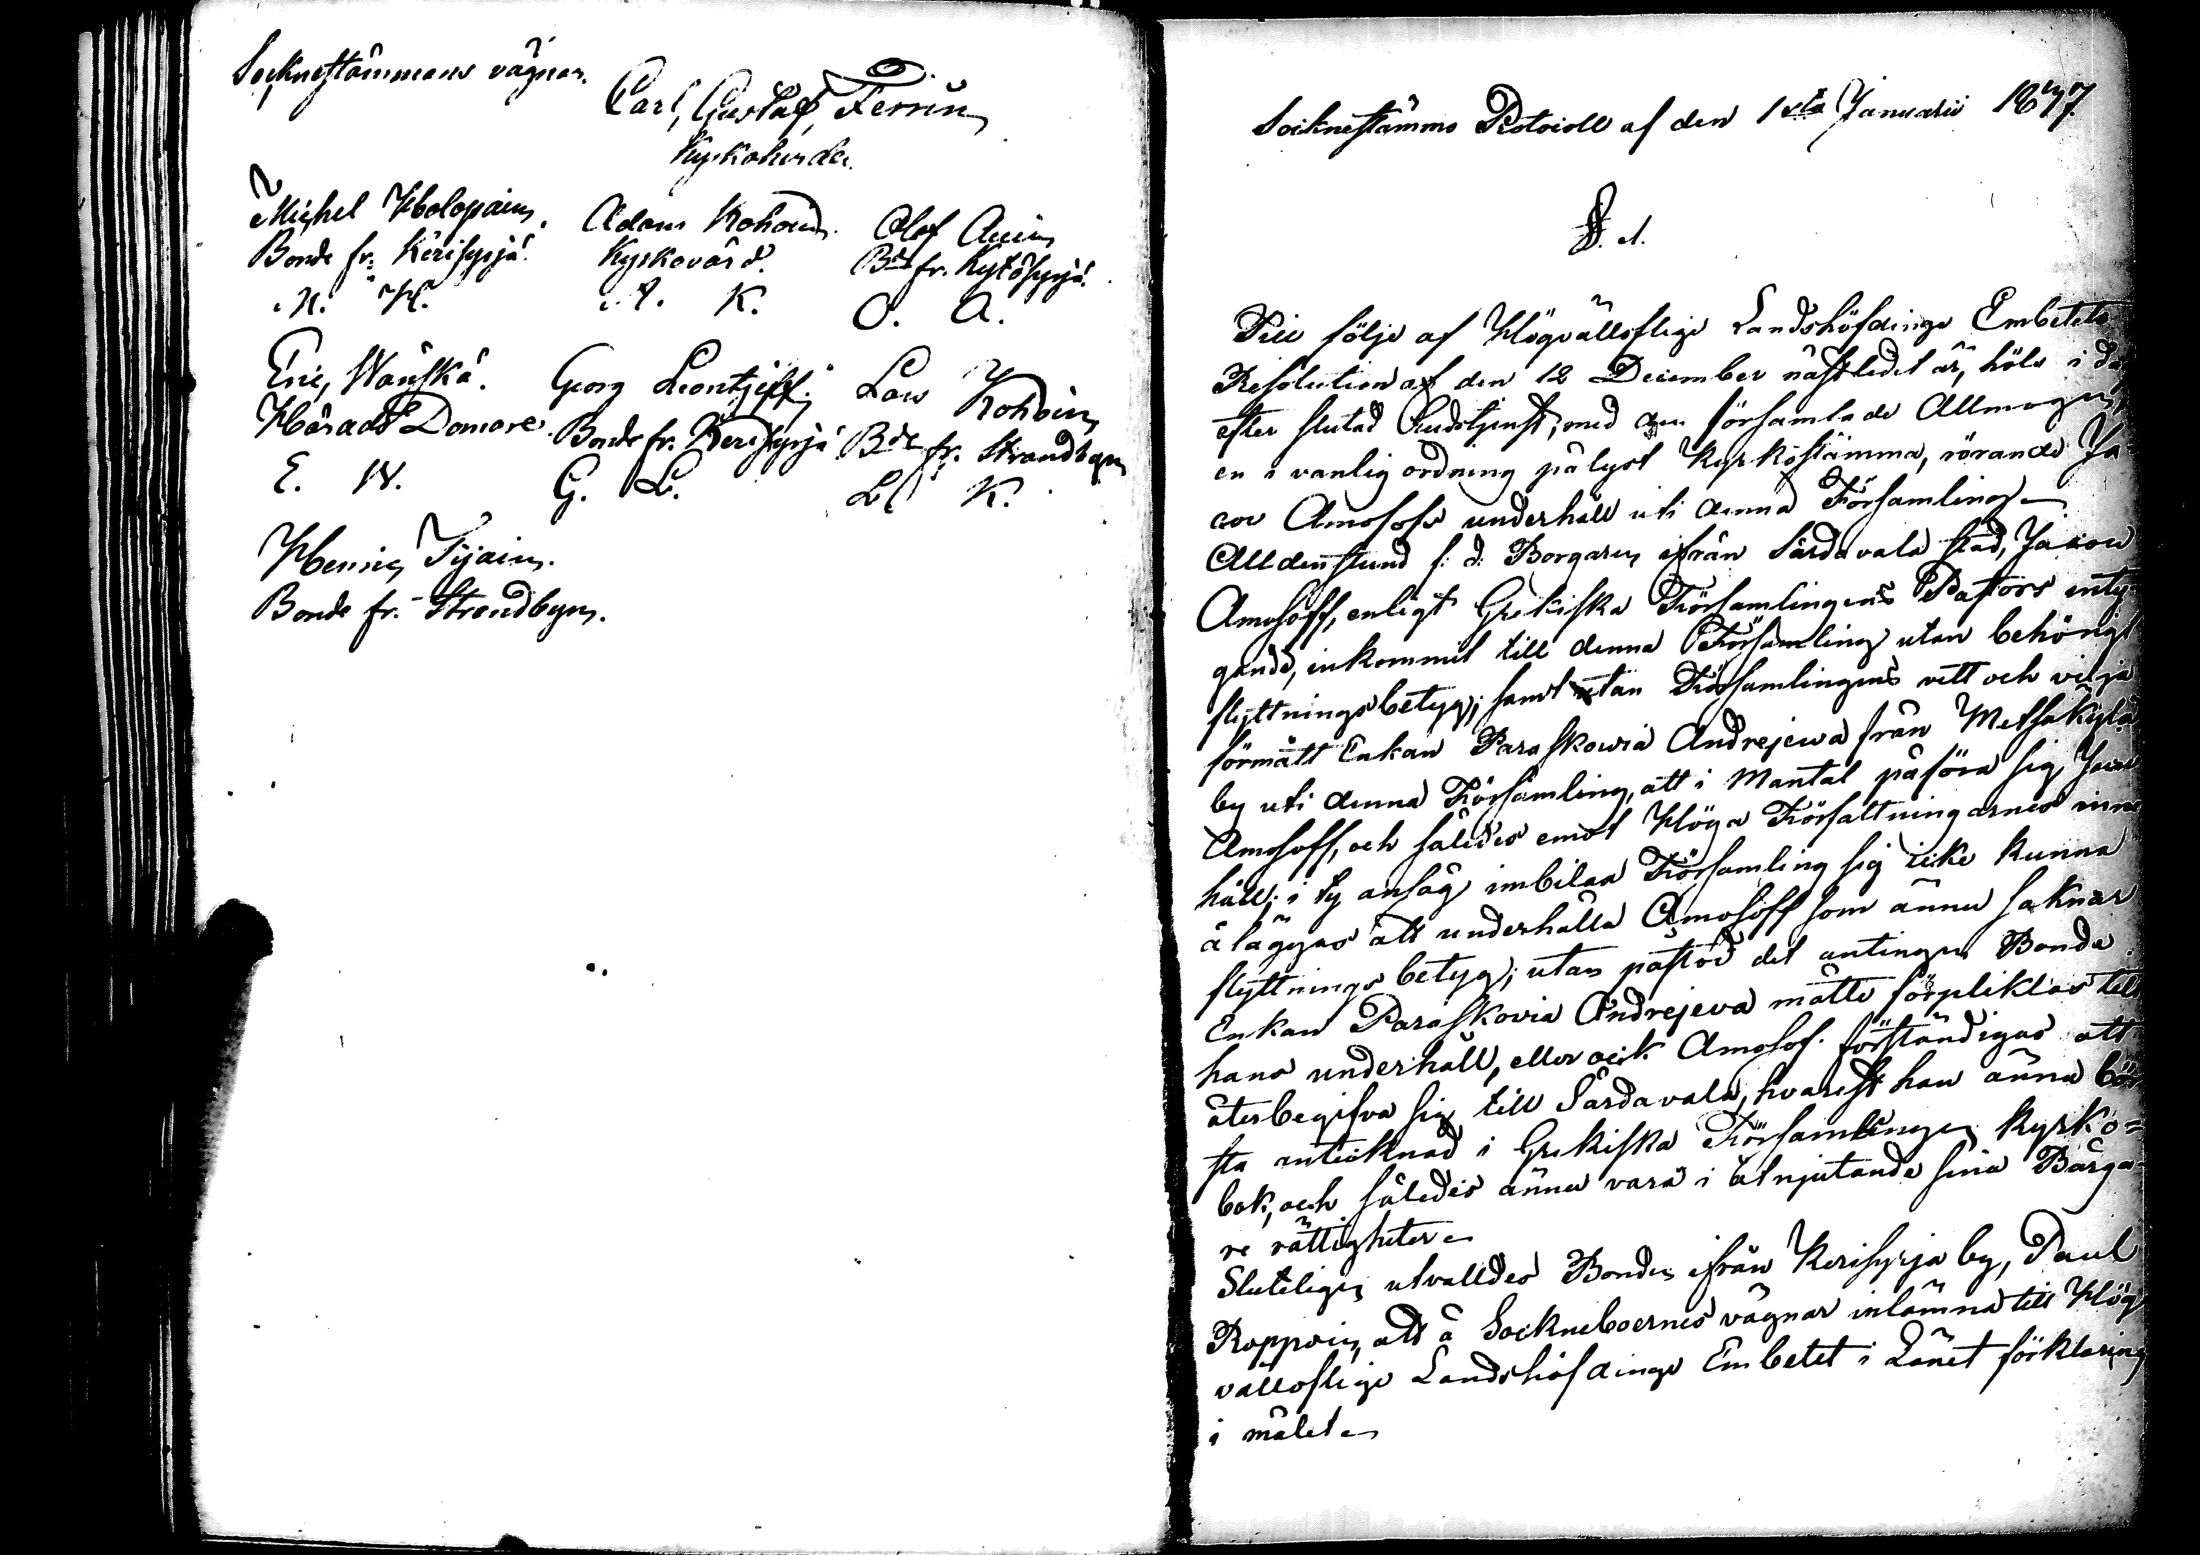 Socknestämmans vägnar.
Carl, Gustaf, Ferrin
Kyrkoherde.
Michel Holopain, Adam Kohoin. Olof Auin
Bonde fr. Kerisyrjä. Kyrkovärd. Bde fr. Kytösyrjä.
M. H. A. K. O. A.
Eric, Wänskä. Georg Leontjeff. Lars Kohoin
Härads Domare. Bonde fr. Kerisyrjä Bde fr. Strandbyn
E. W. G. L. L. K.
Henric Tijain.
Bonde fr. Strandbyn.
Socknestämmo Protocoll af den 1sta Januarii 1847.
§. 1.
Till följe af Högvällofliga Landshöfdinge Embetets
Resolution af den 12 December nästledet år, höls i dag
efter slutad Gudstjenst, med den församlade Allmogen,
en i vanlig ordning pålyst Kyrkostämma, rörande Ja-
cov Amosofs underhåll uti denna Församling
Alldenstund f. d. Borgaren ifrån Sårdavala stad, Jacow
Amosoff, enligt Grekiska Församlingens Pastors inty-
gande, inkommit till denna Församling utan behörigt
flyttningsbetyg; samt utan Församlingens vett och vilja
förmått Enkan Paraskowia Andrejewa från Metsäkylä
by uti denna Församling, att i Mantal påföra sig Jacov
Amosoff, och således emot Höga Författningarnes inne-
håll; i ty ansåg imbilaa Församling sig icke kunna
åläggas att underhålla Amosoff som ännu saknar
flyttnings betyg; utan påstod det antingen Bonde
Enkan Paraskovia Andrejeva måtte förpliktas till
hans underhåll, eller ock Amosof. förständigas att
återbegifva sig till Sårdavala, hvarest han ännu bör
sta antecknad i Grekiska Församlingens Kyrko=
bok, och således ännu vara i åtnjutande sina Borga-
re rättigheter
Sluteligen utvalldes Bonden ifrån Kerisyrja by, Paul
Roppoin, att å Sockneboernes vägnar inlämna till Hög
vällofliga Landshöfdinge Embetet i Länet förklaring
i målet